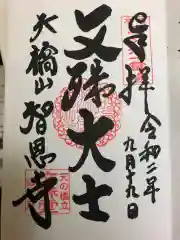 奉拝
令和二年
九月十九日
文殊大士
天橋山
智恩寺
天の橋立